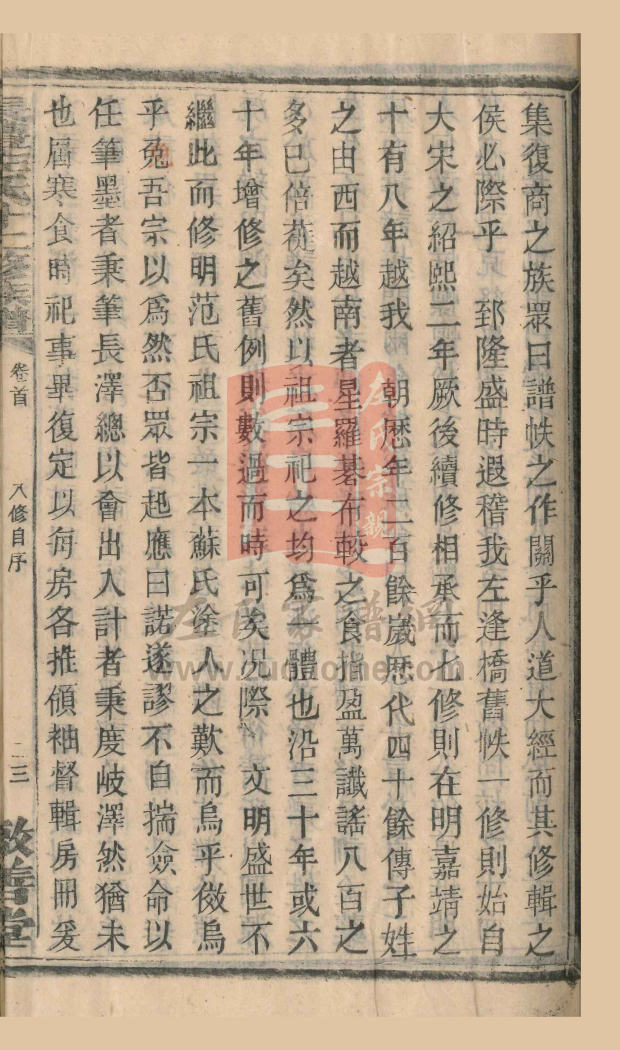 集復商之族眾曰譜帙之作關乎人道大經而其修輯之
侯必際乎 郅隆盛時遐稽我左逢橋舊帙一修則始自
大宋之紹熙二年厥後續修相承而七修則在明嘉靖之
十有八年越我 朝歷年二百餘歲歷代四十餘傳子姓
之由西而越南者星羅碁布較之食指盈萬讖謠八百之
多已倍蓰矣然以祖宗祀之均爲一體也沿三十年或六
十年增修之舊例則數過而時可矣况際 文明盛世不
繼此而修明范氏祖宗一本蘇氏塗人之歎而烏乎儆烏
乎免吾宗以爲然否眾皆起應曰諾遂謬不自揣僉命以
任筆墨者秉筆長澤總以會出入計者秉度岐澤然猶未
也屆寒食時祀事畢復定以每房各推領袖督輯房冊爰
十二修族譜
卷首
八修自序
三
敬善堂
左氏宗親
左氏家譜網
www.zuohome.com